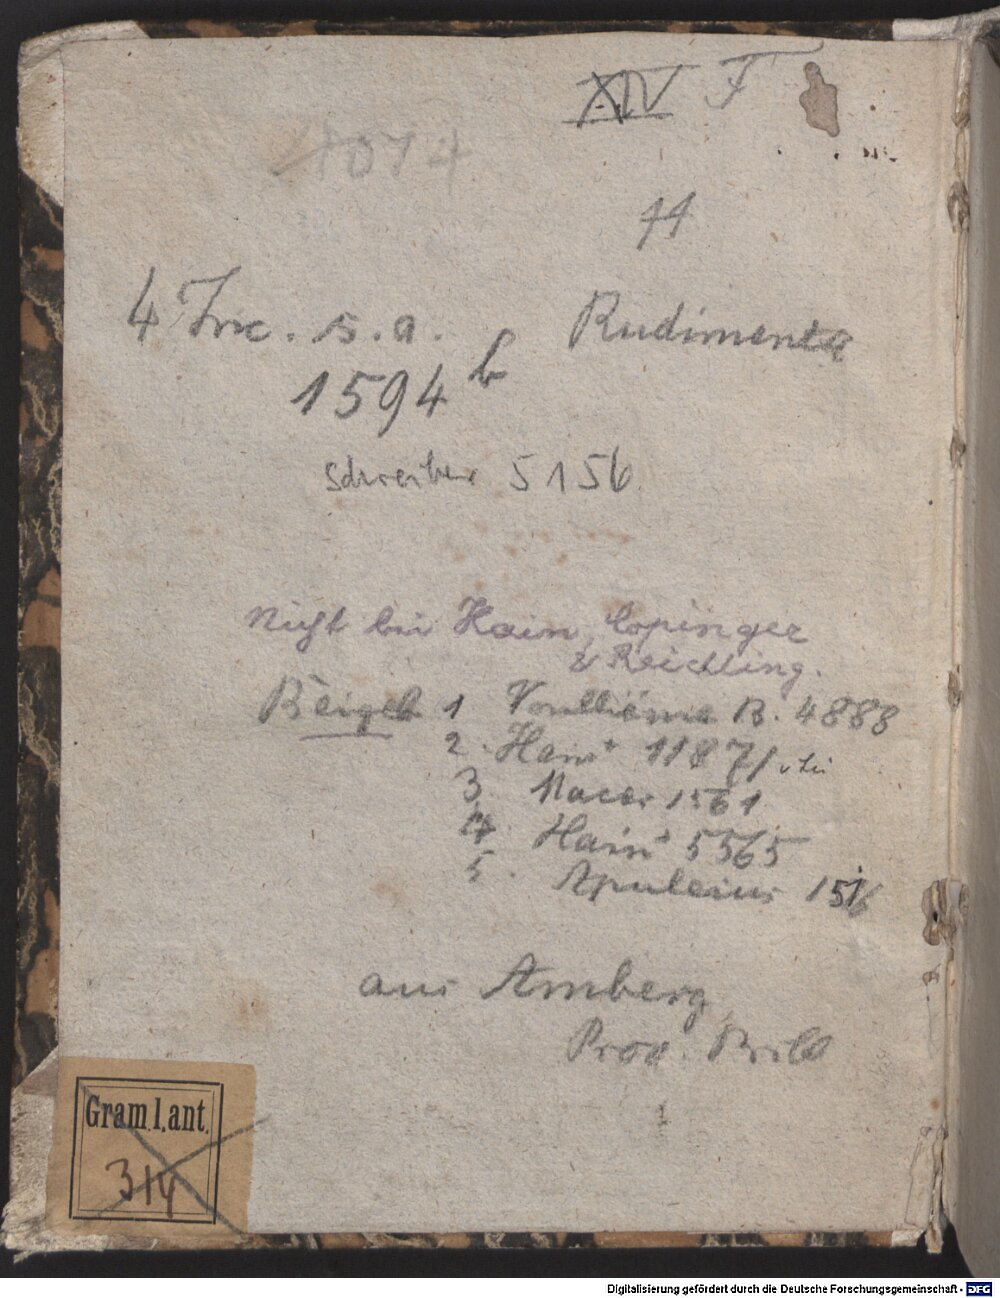 XIV F
1074
11
4 Inc. s. a.
1594 b
Rudimenta
Schreiber 5156
Nicht bei Hain, Copinger
& Reichling.
Beigeb 1 Voulliéme B. 4888
2. Hain+ 11871
3. Macer 1561
4. Hain+ 5565
5. Apuleius 1516
aus Amberg
Prov. Bibl
Gram. l. ant.
314
Digitalisierung gefördert durch die Deutsche Forschungsgemeinschaft - DFG